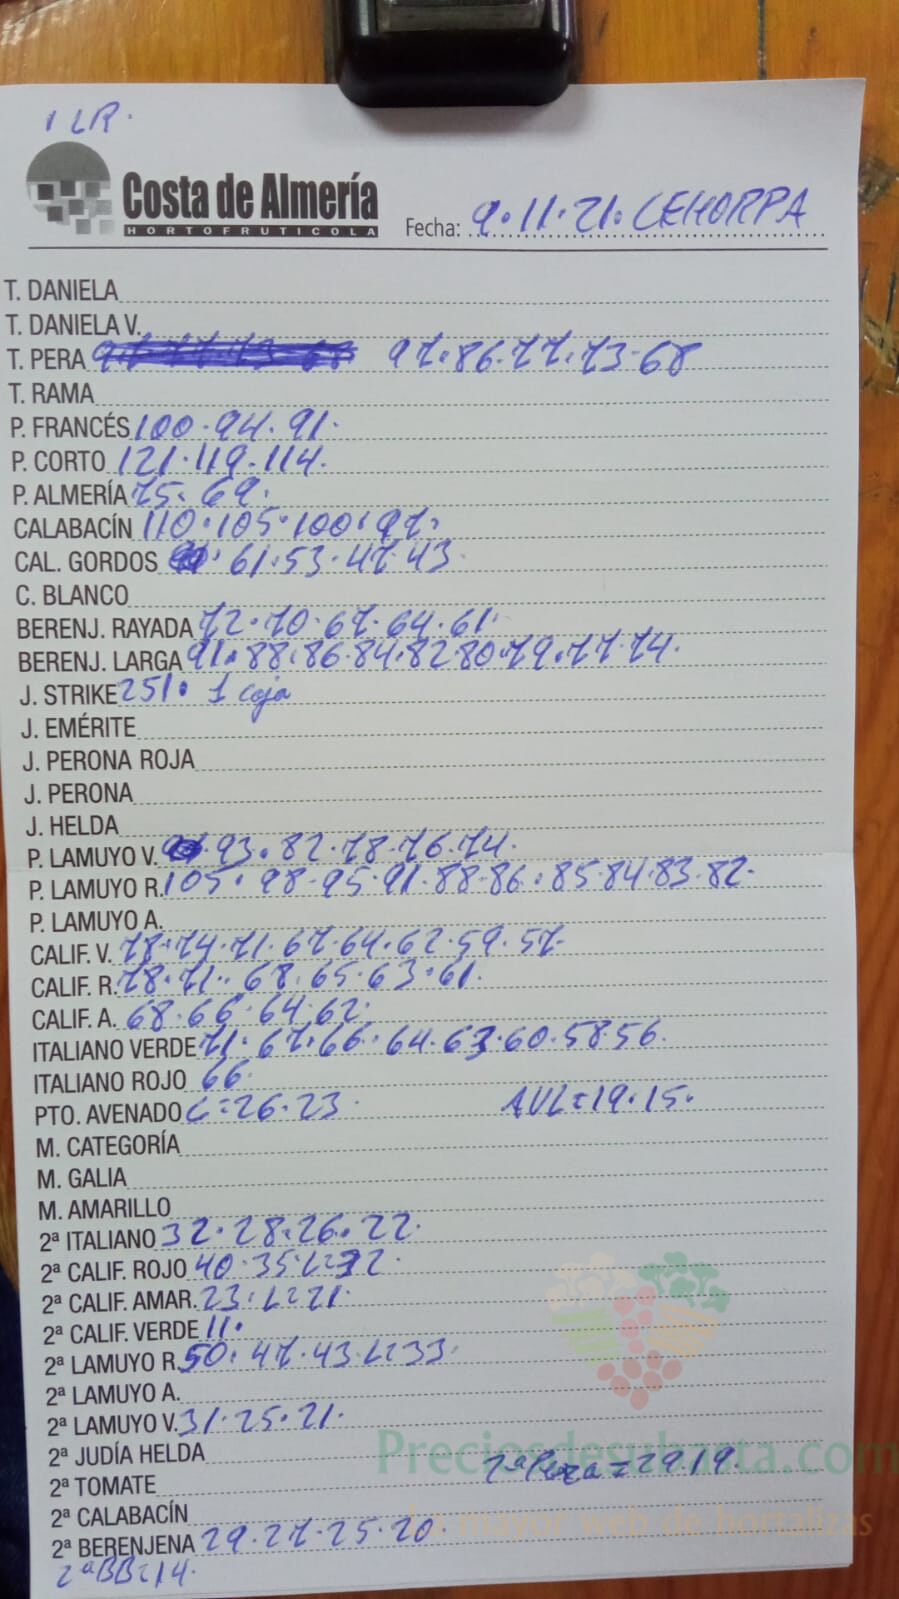 1 LR.
Costa de Almería
HORTOFRUTICOLA
Fecha: 9.11.21. CEHORPA
T. DANIELA
T. DANIELA V.
T. PERA 97.86.77.73-68
T. RAMA
P. FRANCÉS 100.94.91.
P. CORTO 121.119.114.
P. ALMERÍA 75.69.
CALABACÍN 110.105.100.97.
CAL. GORDOS 61.53.47.43.
C. BLANCO
BERENJ. RAYADA 72.70.67.64.61.
BERENJ. LARGA 91.88.86.84.82 80.79.77.74.
J. STRIKE 251. 1 caja
J. EMÉRITE
J. PERONA ROJA
J. PERONA
J. HELDA
P. LAMUYO V. 93.82.78.76.74.
P. LAMUYO R. 105.98-95.91.88.86.85.84.83.82.
P. LAMUYO A.
CALIF. V. 78.74.71.67.64.62.59.57.
CALIF. R. 78.71.68.65.63.61.
CALIF. A. 68.66.64.62.
ITALIANO VERDE 71.67.66.64.63.60.58 56.
ITALIANO ROJO 66.
PTO. AVENADO C=26.23. AVL=19.15.
M. CATEGORÍA
M. GALIA
M. AMARILLO
2ª ITALIANO 32.28.26.22.
2ª CALIF. ROJO 40.35.L=32.
2ª CALIF. AMAR. 23.L=21.
2ª CALIF. VERDE 11.
2ª LAMUYO R. 50.47.43.L=33.
2ª LAMUYO A.
2ª LAMUYO V. 31.25.21.
2ª JUDÍA HELDA
Preciosdesubasta.com
2ª TOMATE 2ª Pera = 29 19.
2ª CALABACÍN
La mayor web de hortalizas
2ª BERENJENA 29.27.25.20
2ª BB=14.